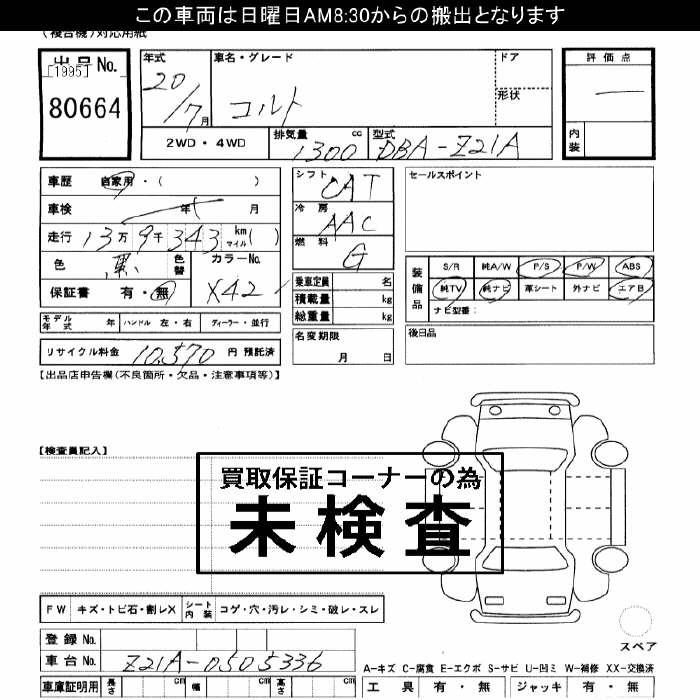 この車両は日曜日AM8:30からの搬出となります
(複合機)対応用紙
出品No.
[1995]
80664
年式
20/7月
車名・グレード
コルト
ドア
形状
評価点
—
内装
2WD・4WD
排気量 1300 cc
型式 DBA-Z21A
車歴 自家用・( )
車検 年 月
走行 13万9千343 km マイル( )
色 黒 色替
カラーNo. X42
保証書 有・無
シフト CAT
冷房 AAC
燃料 G
乗車定員 名
積載量 kg
総重量 kg
名変期限 月 日
セールスポイント
装備品
S/R 純A/W P/S P/W ABS
純TV 純ナビ 革シート 外ナビ エアB
ナビ型番:
後日品
モデル年式 年 ハンドル 左・右 ディーラー・並行
リサイクル料金 10,570 円 預託済
【出品店申告欄(不良箇所・欠品・注意事項等)】
【検査員記入】
買取保証コーナーの為
未検査
FW キズ・トビ石・割レX シート内装 コゲ・穴・汚レ・シミ・破レ・スレ
登録No.
車台No. Z21A-0505336
車庫証明用 長さ cm 幅 cm 高さ cm
スペア
A-キズ C-腐食 E-エクボ S-サビ U-凹ミ W-補修 XX-交換済
工具 有・無 ジャッキ 有・無